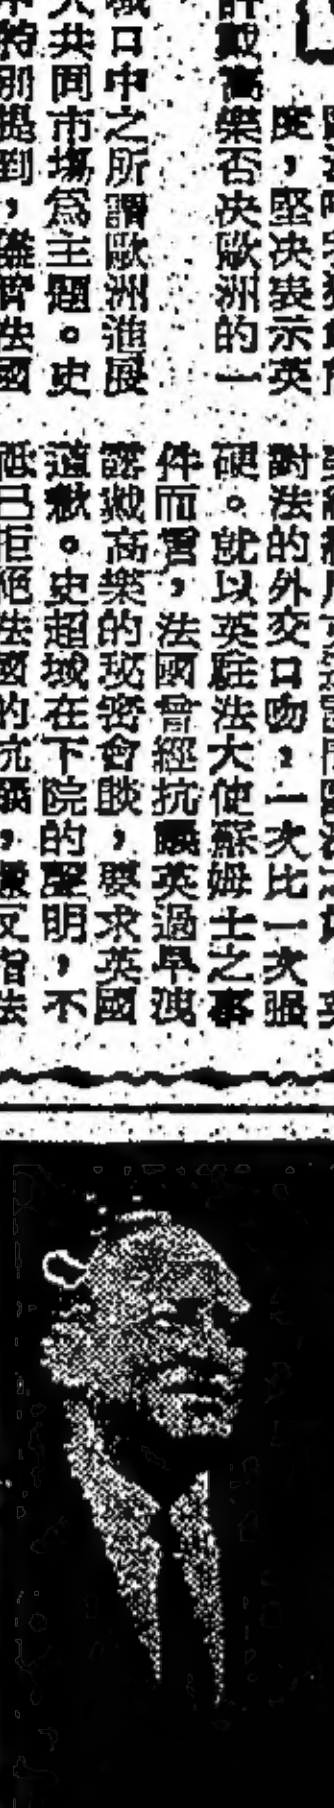 度，堅決表示英
許戴高樂否決歐洲的一
域口中之所謂歐洲進展
入共同市場為主題。史
特別提到，儘管法國
對法的外交口吻，一次比一次强
硬。就以英駐法大使蘇姆士之事
件而言，法國曾經抗議英過早洩
露戴高樂的秘密會談，要求英國
道歉。史超域在下院的聲明，不
祗已拒絕法國的抗議，還反指法